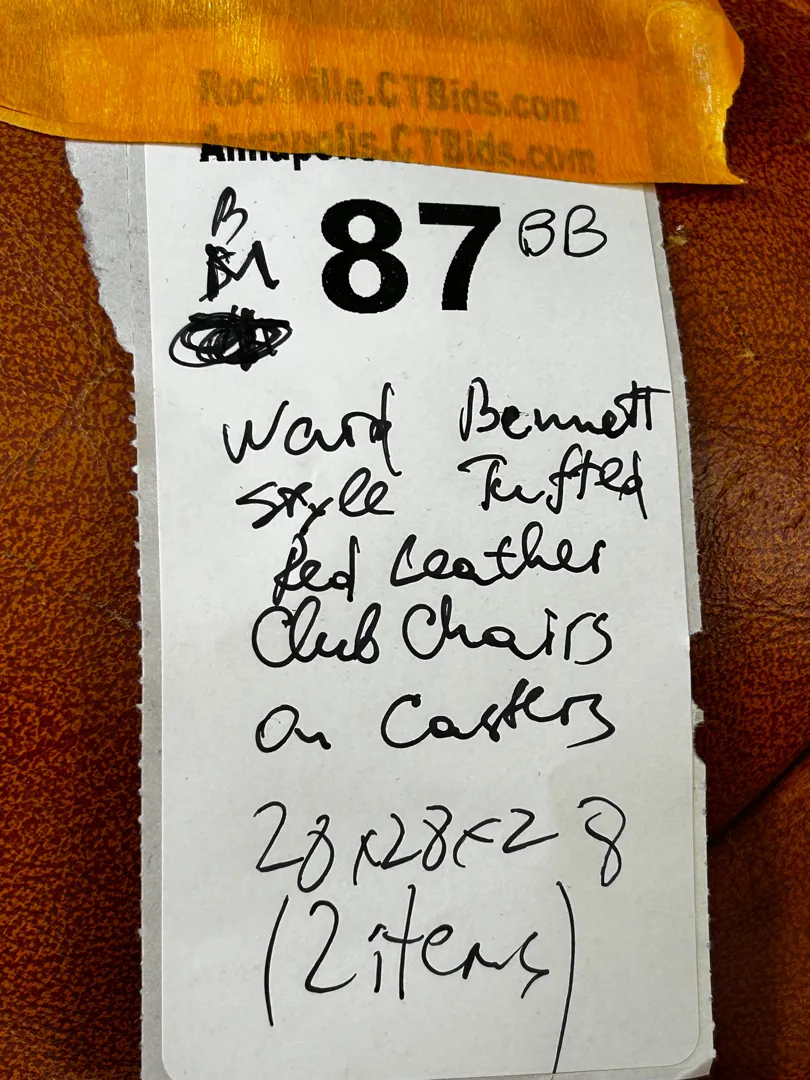 Rockville.CTBids.com
Annapolis.CTBids.com
B
87 BB
Ward Bennett
Style Tufted
Red Leather
Club Chairs
on Casters
28x28x28
(2 items)